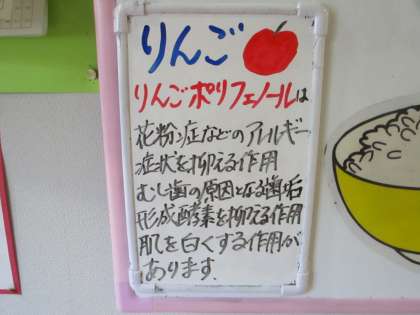 りんご
りんごポリフェノールは
花粉症などのアレルギー
症状を抑える作用
むし歯の原因となる歯垢
形成酵素を抑える作用
肌を白くする作用が
あります